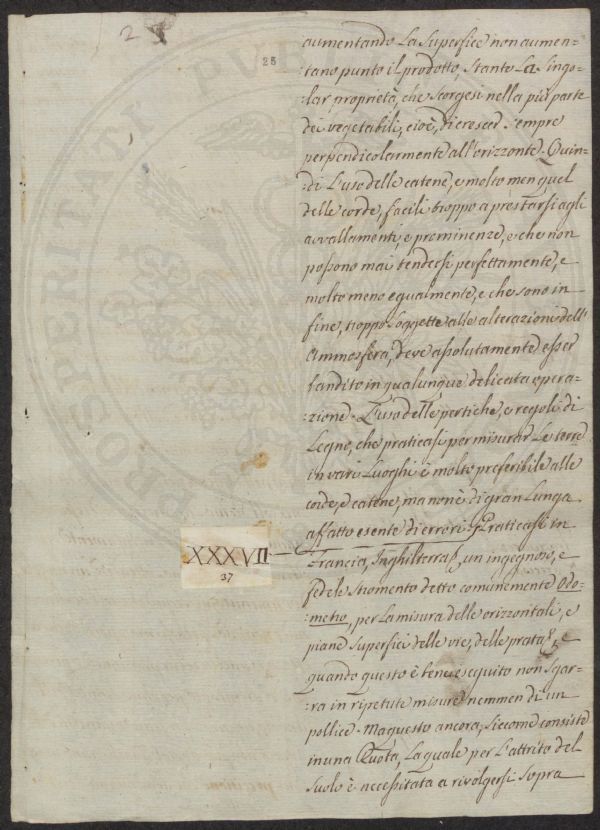 2
23
aumentando La Superfice non aumen-
:tano punto il prodotto, Stante La Singo-
:lar proprietà, che Scorgesi nella più parte
dei vegetabili, cioè, di crescer Sempre
perpendicolarmente all'orizzonte. Quin-
:di L'uso delle catene, e molto men quel
delle corde, facili troppo a prestarsi agli
avvallamenti, e prominenze, e che non
possono mai tendersi perfettamente, e
molto meno egualmente, e che sono in
fine, troppo Soggette alle alterazioni dell'
Ammosfera, deve assolutamente esser
bandito in qualunque delicata opera-
:zione. L'uso delle pertiche, e regoli di
Legno, che praticasi per misurar Le terre
in vari Luoghi è molto preferibile alle
corde, e catene, ma non è di gran Lunga
affatto esente di errori. Praticasi in
XXXVII
37
Francia, Inghilterra, un ingegnoso, e
fedele Stromento detto comunemente Odo-
:metro, per La misura delle orizzontali, e
piane Superfici delle vie, delle prata, e
quando questo è bene eseguito non Sgar-
:ra in ripetute misure nemmen di un
pollice. Ma questo ancora, Siccome consiste
in una Ruota, La quale per L'attrito del
Suolo è necessitata a rivolgersi Sopra
PROSPERITATI PUB